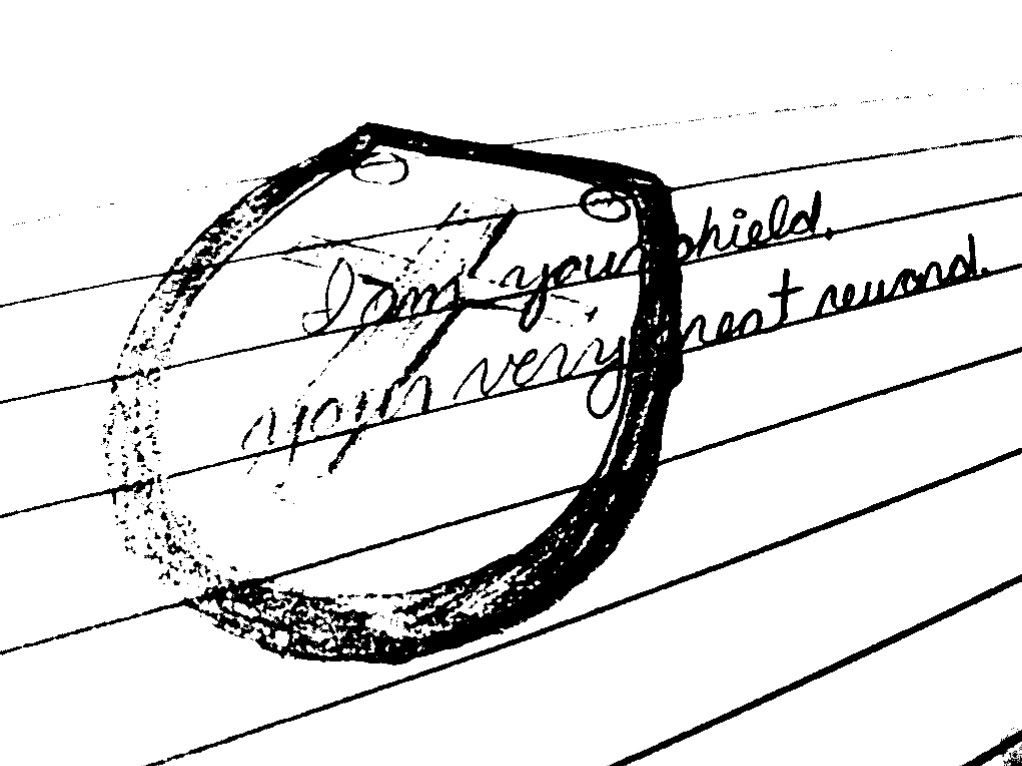 I am your shield,
your very great reward.